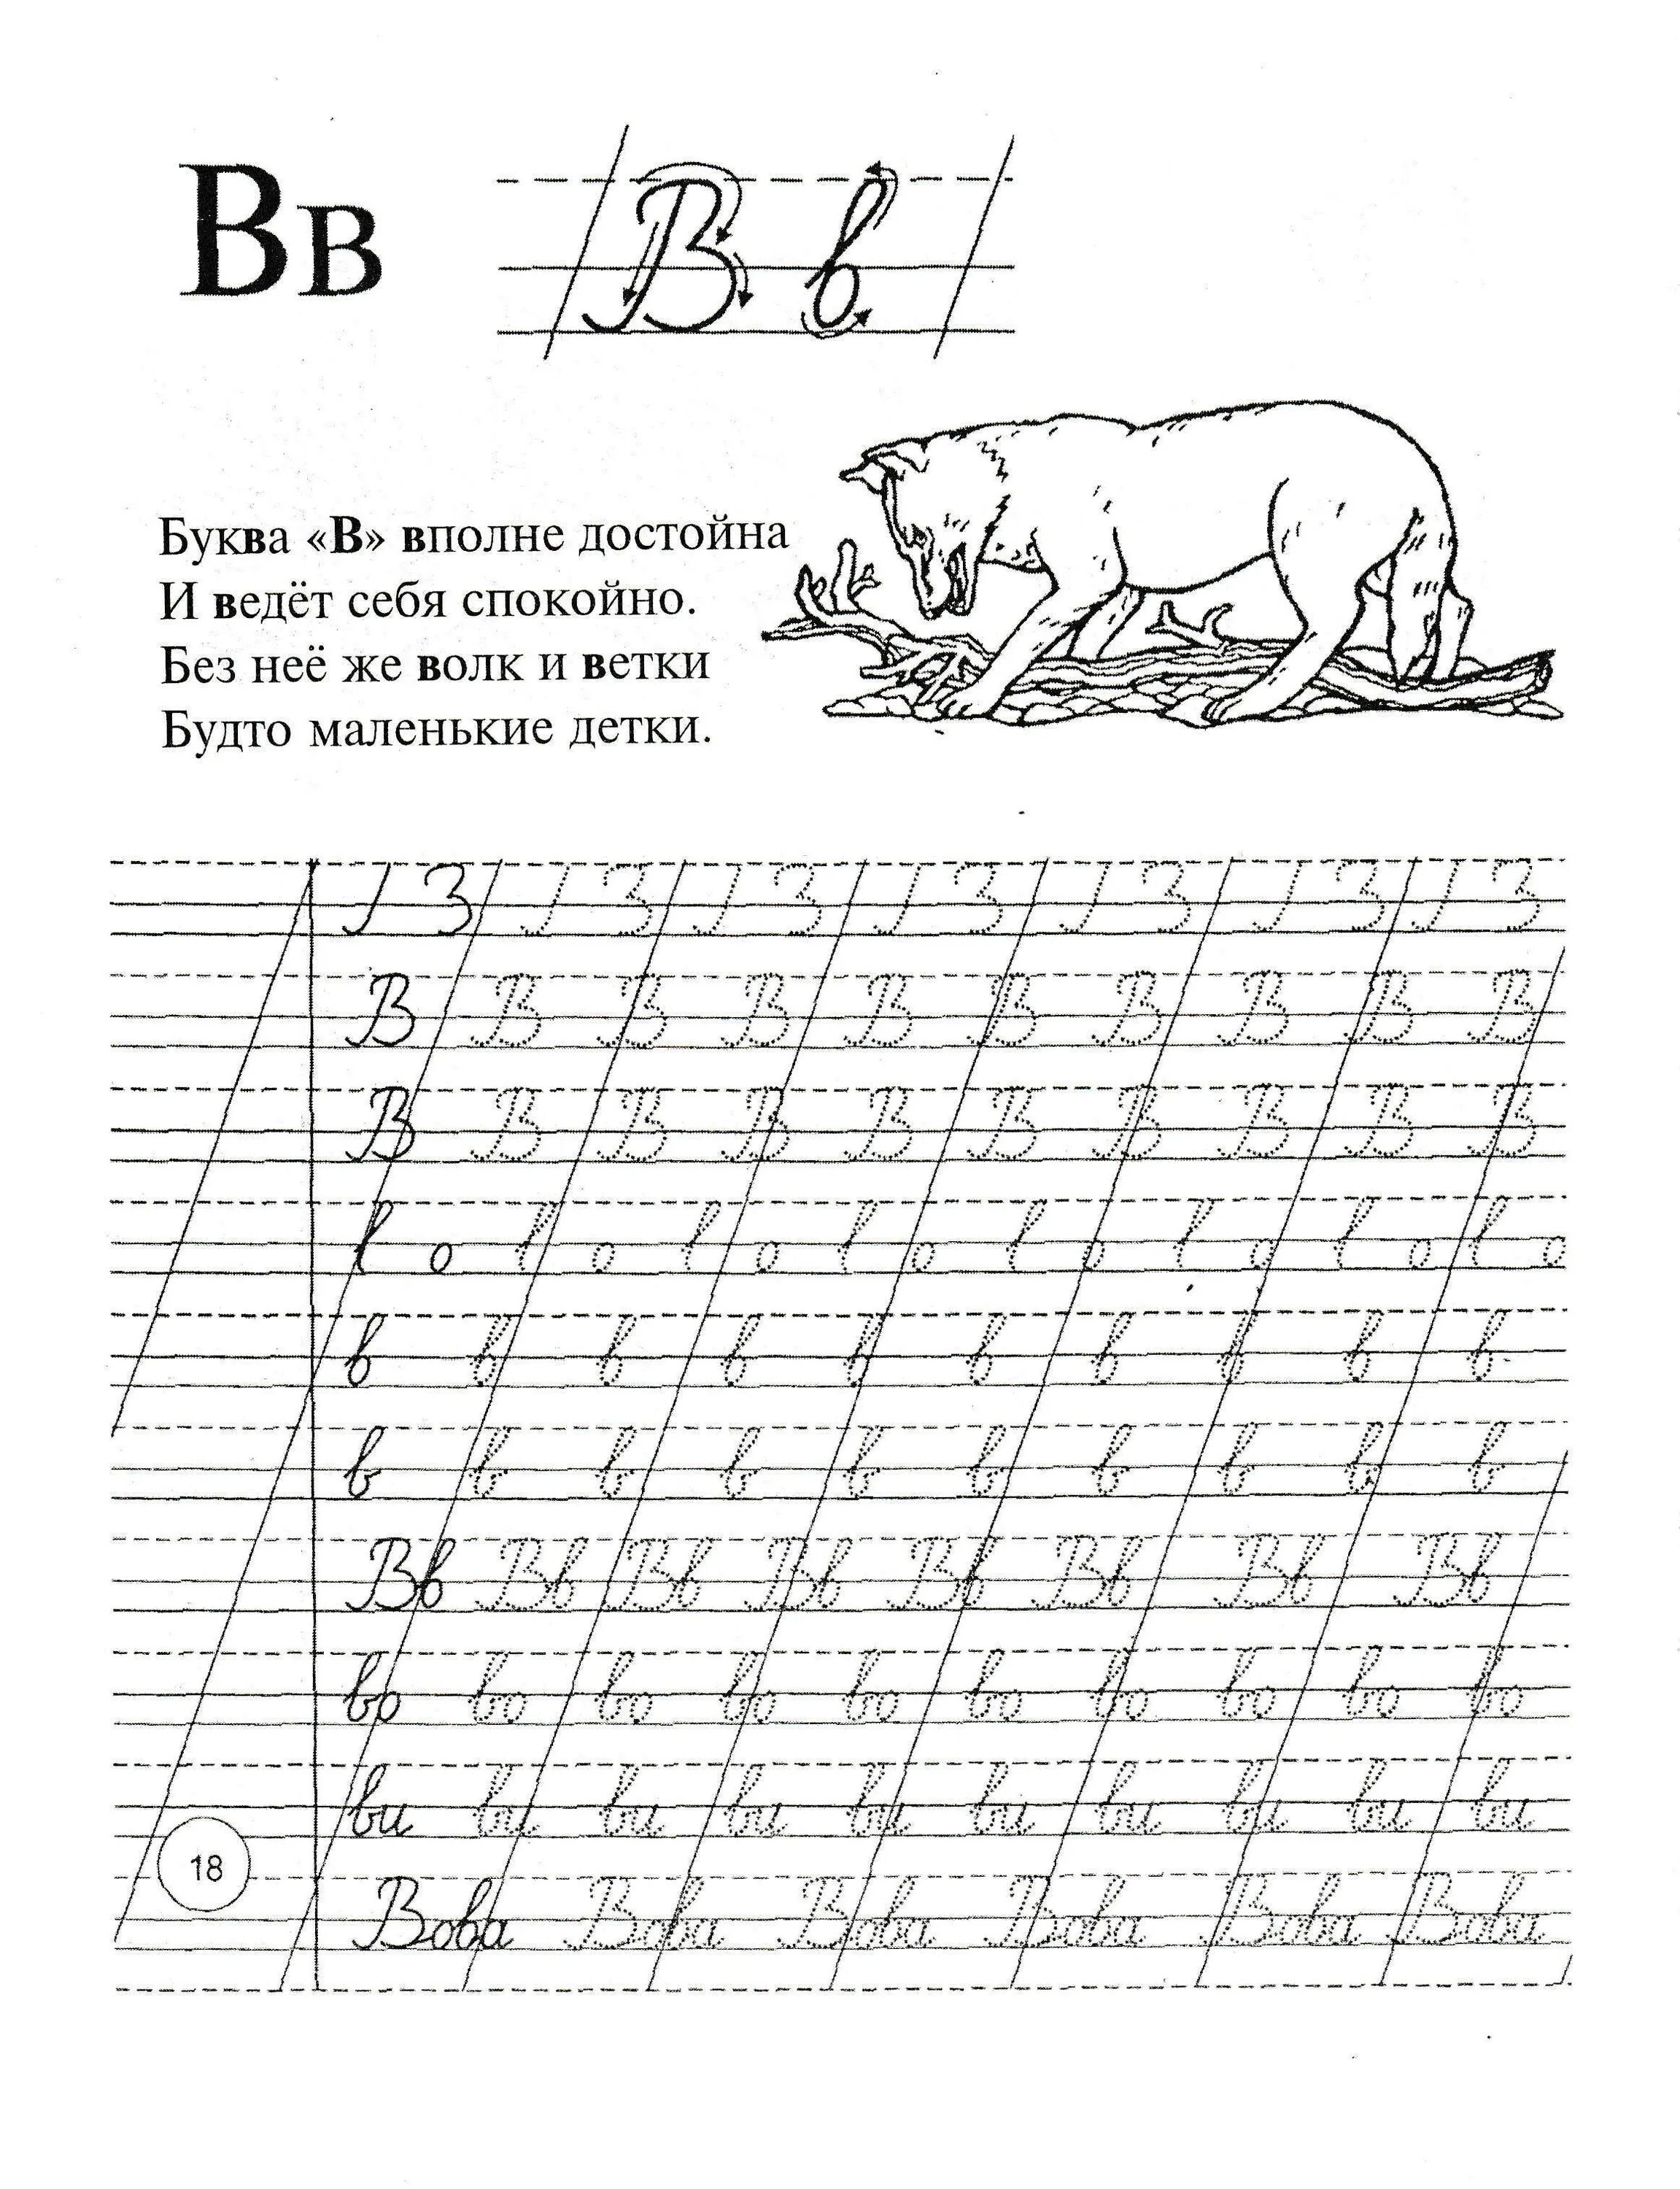 Вв В в
Буква «В» вполне достойна
И ведёт себя спокойно.
Без неё же волк и ветки
Будто маленькие детки.
В В В В В В В В В В
В В В В В В В В В В
в в в в в в в в в в
в в в в в в в в в в
Вв Вв Вв Вв Вв Вв Вв Вв
во во во во во во во во во во
ви ви ви ви ви ви ви ви ви ви
18
Вова Вова Вова Вова Вова Вова